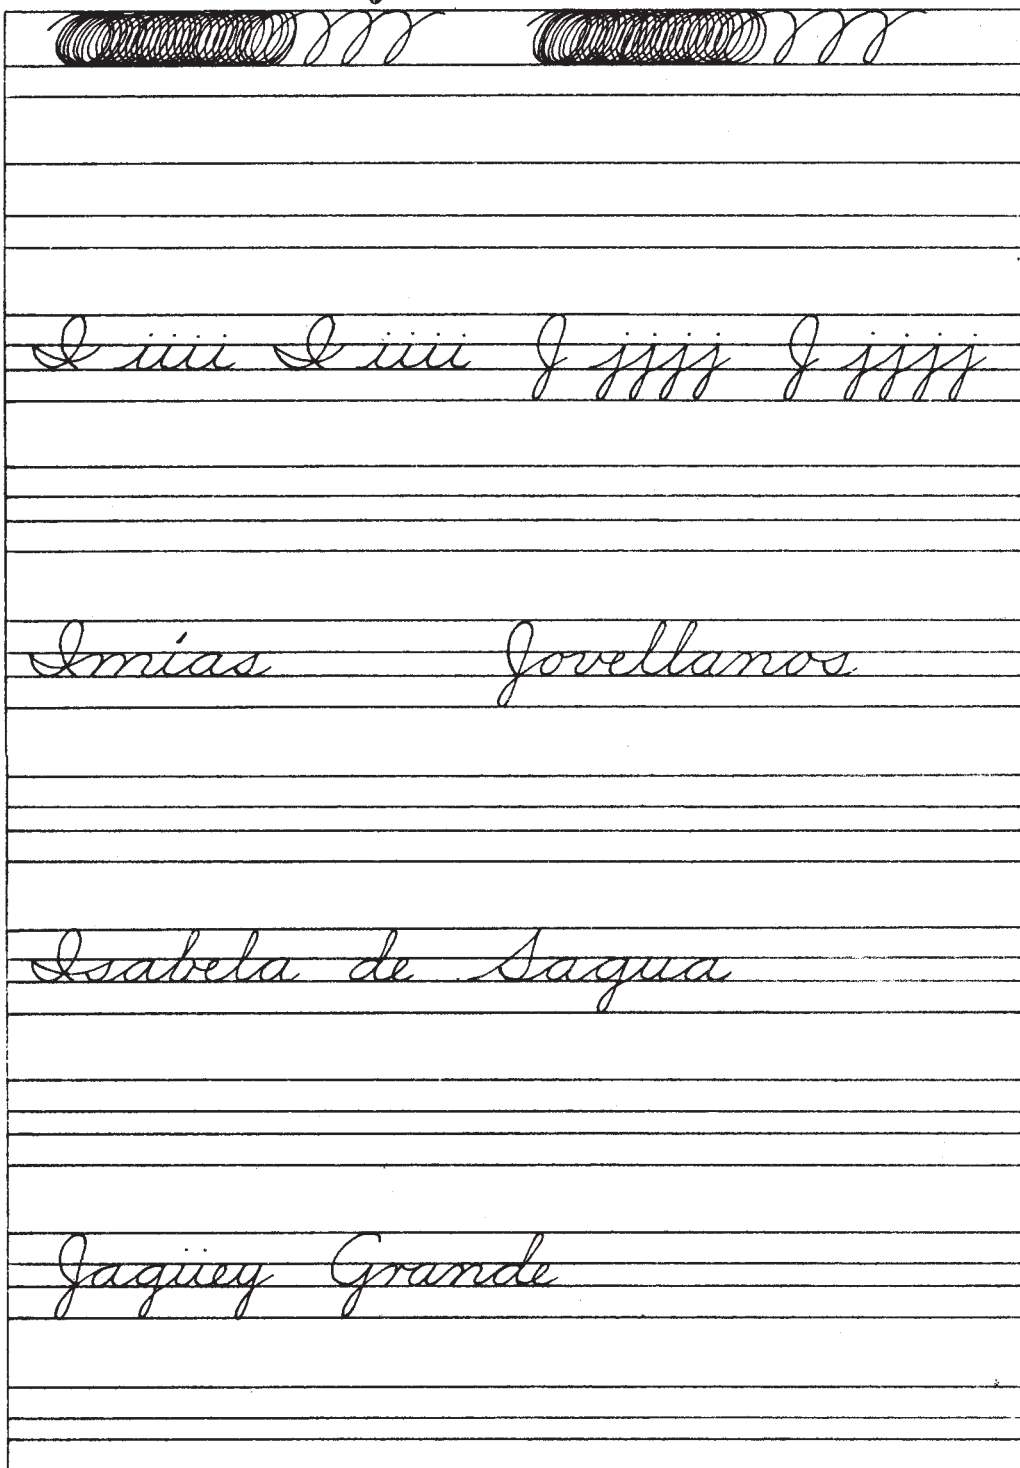 I iiii I iiii J jjjj J jjjj
Imías Jovellanos
Isabela de Sagua
Jagüey Grande